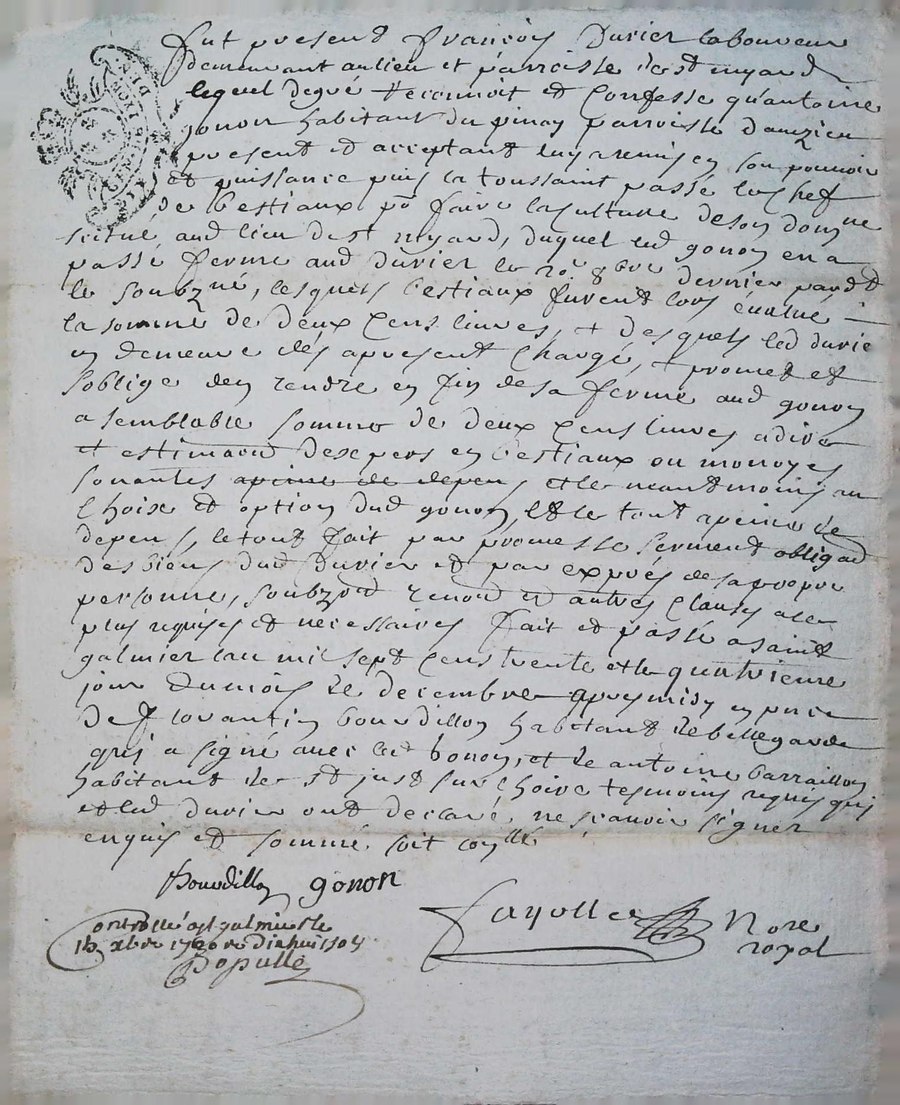 fut present François Durier laboureur
demeurant au lieu et parroisse de st myard
lequel de gré reconnoit et confesse qu'antoine
gonon habitant du pinay parroisse d'auzieu
present et acceptant luy a remis en son pouvoir
et puissance puis la toussaint passé le chef
de bestiaux po faire la culture de son domne
scitué aud lieu de st myard, duquel led gonon en a
passé ferme aud durier le 20e 8bre dernier pard
le soubzné, lesquels bestiaux furent lors évalué
la somme de deux cens livres, + desquels led durie
en demeure dés apresent chargé, + promet et
s'oblige d'en rendre en fin de sa ferme aud gonon
a semblable somme de deux cens livres a dire
et estimaôn d'expers en bestiaux ou monoyes
sonantes apeine de depens, et le neantmoins au
choise et option dud gonon, et le tout apeine de
depens, le tout fait par promesse serment obligaôn
des biens dud durier et par exprés de sa propre
personne, soubzôn renonôn et autres clauses a ce
plus requises et necessaires fait et passé a saint
galmier l'an mil sept cens trente et le quatrieme
jour du mois de decembre apres midy en pnce
de florantin bourdillon habitant de bellegarde
qui a signé avec led gonon, et de antoine barraillon
habitant de st just sur Choire tesmoins requis qui
et led durier ont declaré ne scavoir signer
enquis et sommé soit conllé
Bourdillon gonon
fayolle Nore
royal
Controllé a st galmier le
1730 dix huit sols
Populle